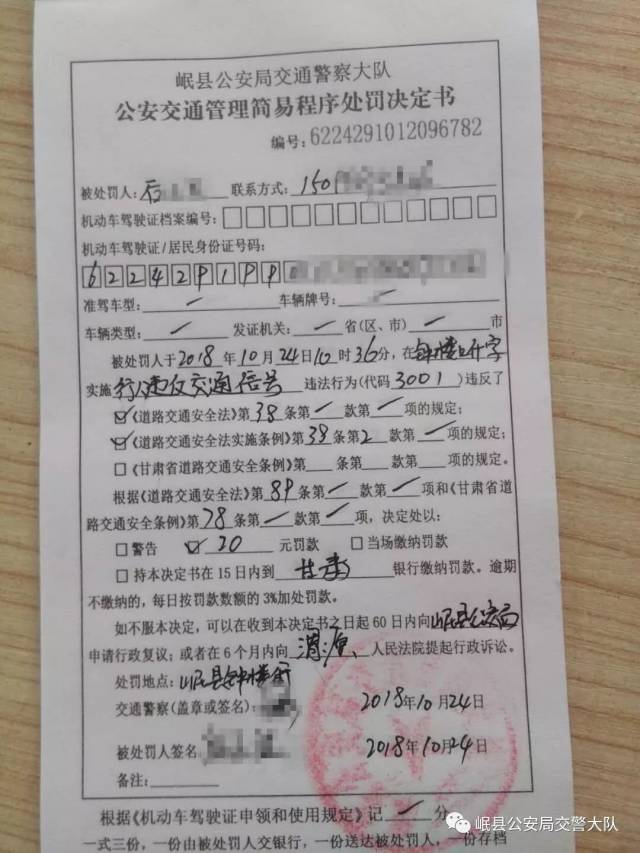 岷县公安局交通警察大队
公安交通管理简易程序处罚决定书
编号:6224291012096782
被处罚人: 后 联系方式: 150
机动车驾驶证档案编号:
机动车驾驶证/居民身份证号码:
622429199
准驾车型: 车辆牌号:
车辆类型: 发证机关: 省(区、市) 市
被处罚人于2018年10月24日10时36分,在钟楼十字
实施行人违反交通信号违法行为(代码3001)违反了
☑《道路交通安全法》第38条第/款第/项的规定;
☑《道路交通安全法实施条例》第39条第2款第/项的规定;
□《甘肃省道路交通安全条例》第 条第 款第 项的规定。
根据《道路交通安全法》第89条第/款第/项和《甘肃省道
路交通安全条例》第78条第/款第/项,决定处以:
□警告 ☑20元罚款 □当场缴纳罚款
□持本决定书在15日内到甘肃银行缴纳罚款。逾期
不缴纳的,每日按罚款数额的3%加处罚款。
如不服本决定,可以在收到本决定书之日起60日内向岷县公安局
申请行政复议;或者在6个月内向渭源、人民法院提起行政诉讼。
处罚地点:岷县钟楼
交通警察(盖章或签名): 2018年10月24日
被处罚人签名 2018年10月24日
备注:
根据《机动车驾驶证申领和使用规定》记/分
一式三份,一份由被处罚人交银行,一份送达被处罚人,一份存档
岷县公安局交警大队